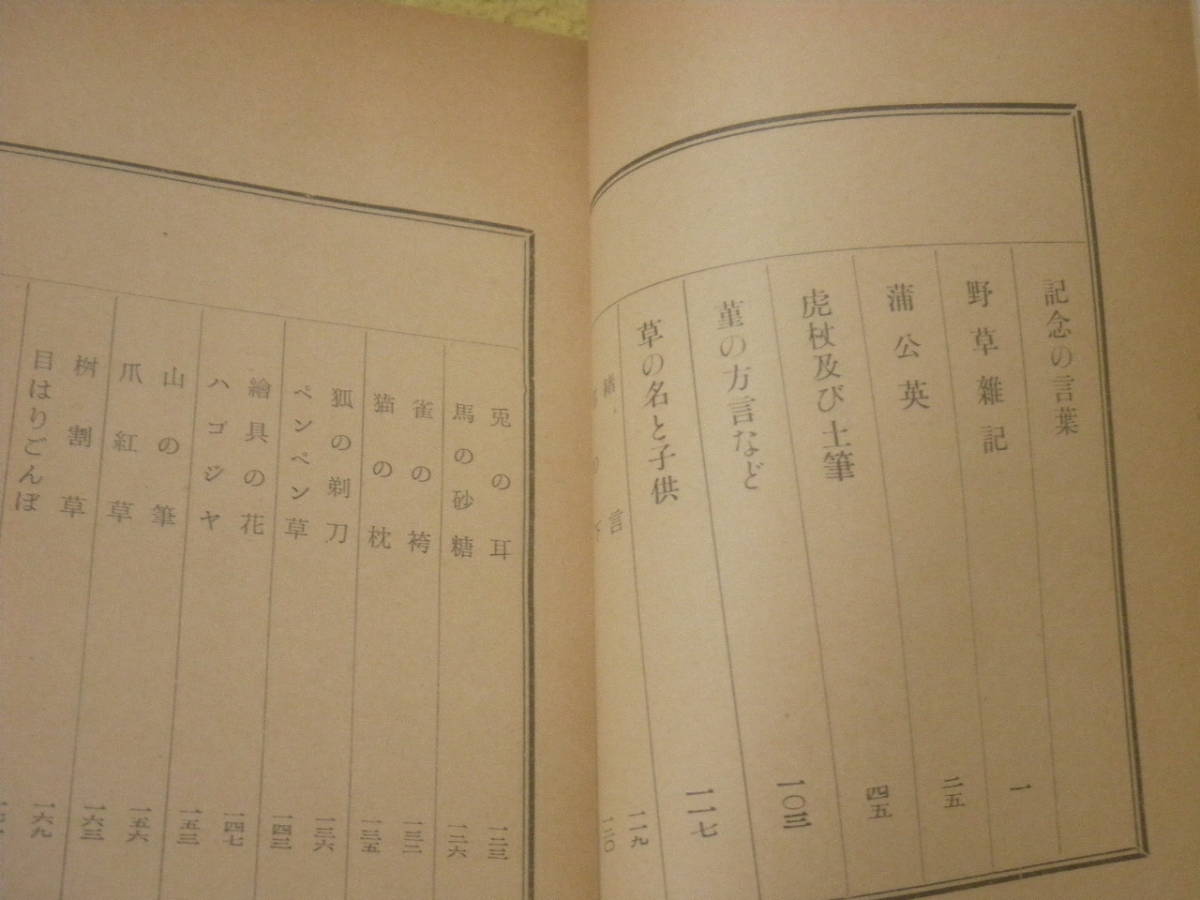 記念の言葉
野草雜記 一
蒲公英 二五
虎杖及び土筆 四五
菫の方言など 一〇三
草の名と子供 一一七
緒言 一一九
一二〇
兎の耳 一二三
馬の砂糖 一二六
雀の袴 一三二
猫の枕 一三五
狐の剃刀 一三六
ペンペン草 一四三
繪具の花 一四七
ハゴジヤ 一五三
山の筆 一五六
爪紅草 一六三
桝割草 一六九
目はりごんぼ